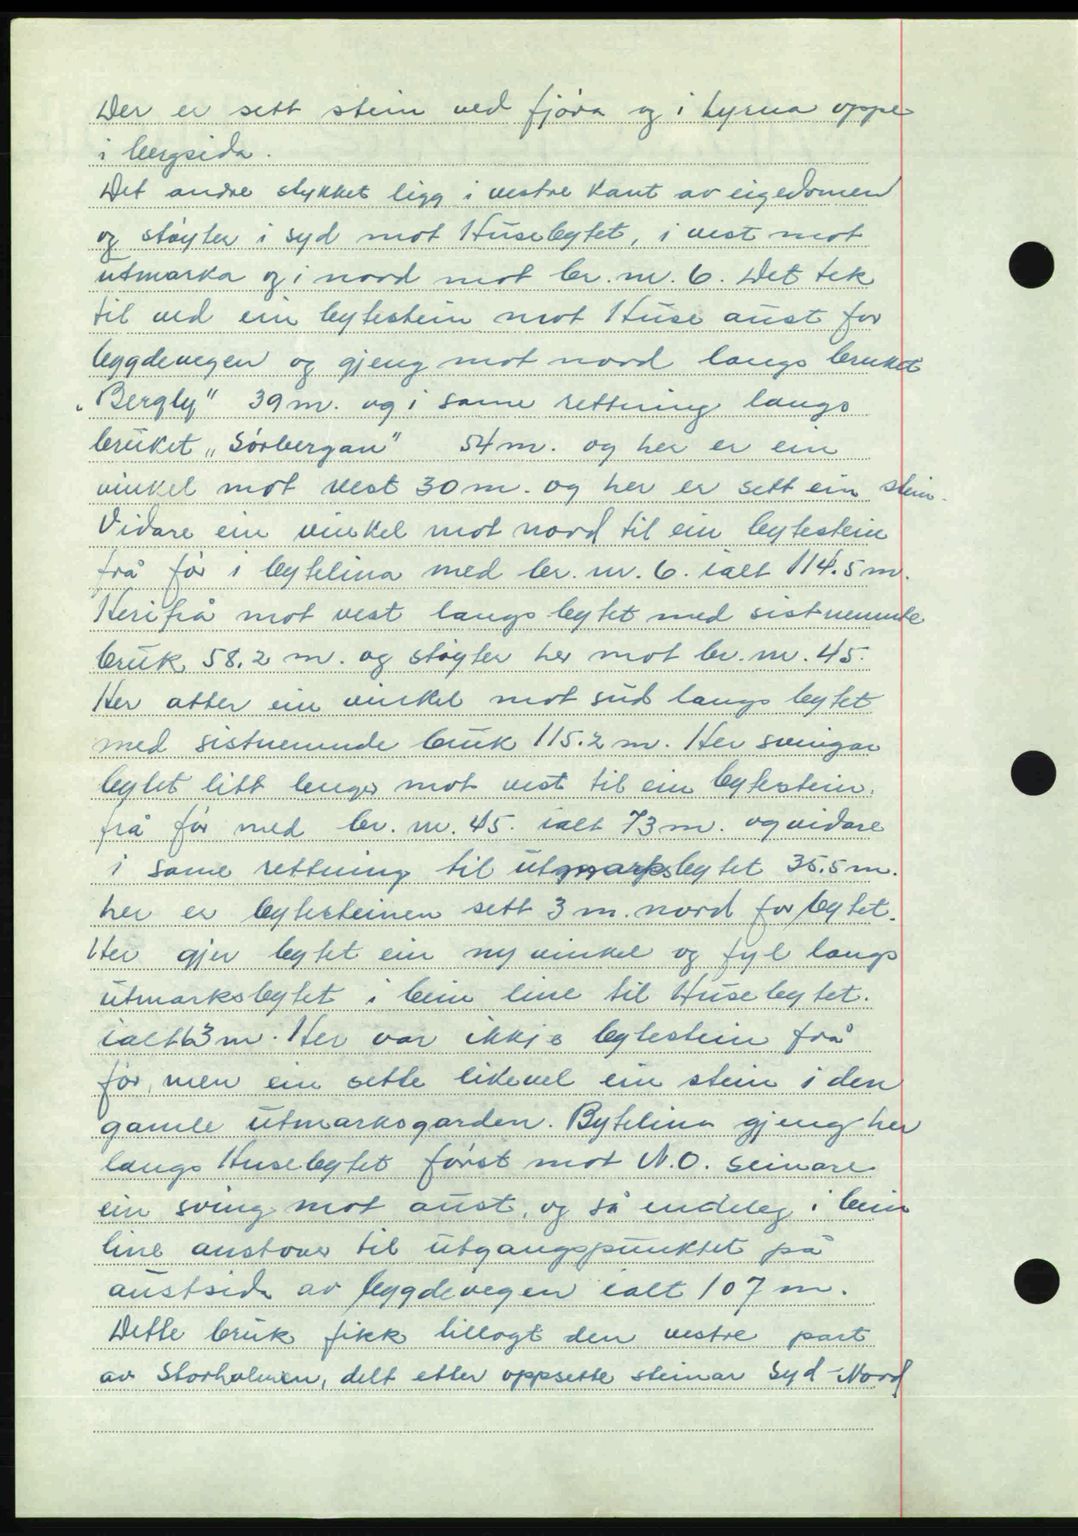 Der er sett stein ved fjøra og i hyrna oppe
i bergsida.
Det andre stykket ligg i vestre kant av eigedomen
og støyter i syd mot Husebytet, i vest mot
utmarka og i nord mot br. nr. 6. Det tek
til ved ein bytestein mot Huse aust for
bygdevegen og gjeng mot nord langs bruket
„Bergly" 39 m. og i same rettning langs
bruket „Sørbergan" 54 m. og her er ein
vinkel mot vest 30 m. og her er sett ein stein.
Vidare ein vinkel mot nord til ein bytestein
frå før i bytelina med br. nr. 6. ialt 114.5 m.
Herifrå mot vest langs bytet med sistnemnde
bruk 58.2 m. og støyter her mot br. nr. 45.
Her atter ein vinkel mot sud langs bytet
med sistnemnde bruk 115.2 m. Her svingar
bytet litt lenger mot vest til ein bytestein.
frå før med br. nr. 45. ialt 73 m. og vidare
i same rettning til utmarksbytet 35.5 m.
her er bytesteinen sett 3 m. nord for bytet.
Her gjer bytet ein ny vinkel og fyl langs
utmarksbytet i bein line til Husebytet.
ialt 63 m. Her var ikkje bytestein frå
før, men ein sette likevel ein stein i den
gamle utmarksgarden. Bytelina gjeng her
langs Husebytet først mot N.O. seinare
ein sving mot aust, og så endeleg i bein
line austover til utgangspunktet på
austsida av bygdevegen ialt 107 m.
Dette bruk fikk tillagt den vestre part
av Storholmen, delt etter oppsette steinar Syd-Nord